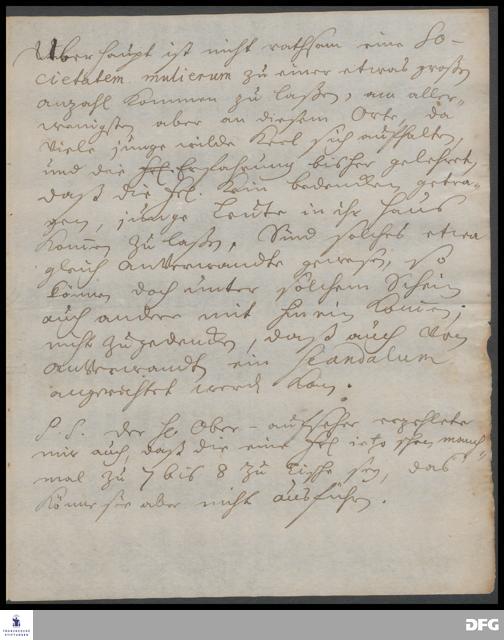 Überhaupt ist nicht rathsam eine So-
cietatem mulierum zu einer etwas großen
anzahl kommen zu laßen, am aller-
wenigsten aber an diesem Orte, da
viele junge wilde Kerl sich aufhalten,
und die Erfahrung bisher gelehret,
daß die Frl. kein bedencken getra-
gen, junge Leute in ihr Hauß
kommen zu laßen. Sind solches etwa
gleich Anverwandte gewesen, so
können doch unter solchem Schein
auch andere mit hinein kommen;
nicht zugedencken, daß auch von
Anverwandten ein Scandalum
angerichtet werden kan.
P. S. der H. Ober-aufseher erzehlete
mir auch, daß die eine Frl. ietzo schon manch-
mal zu 7 bis 8 zu Tische sey, das
könne sie aber nicht ausführen.
FRANCKESCHE STIFTUNGEN
DFG